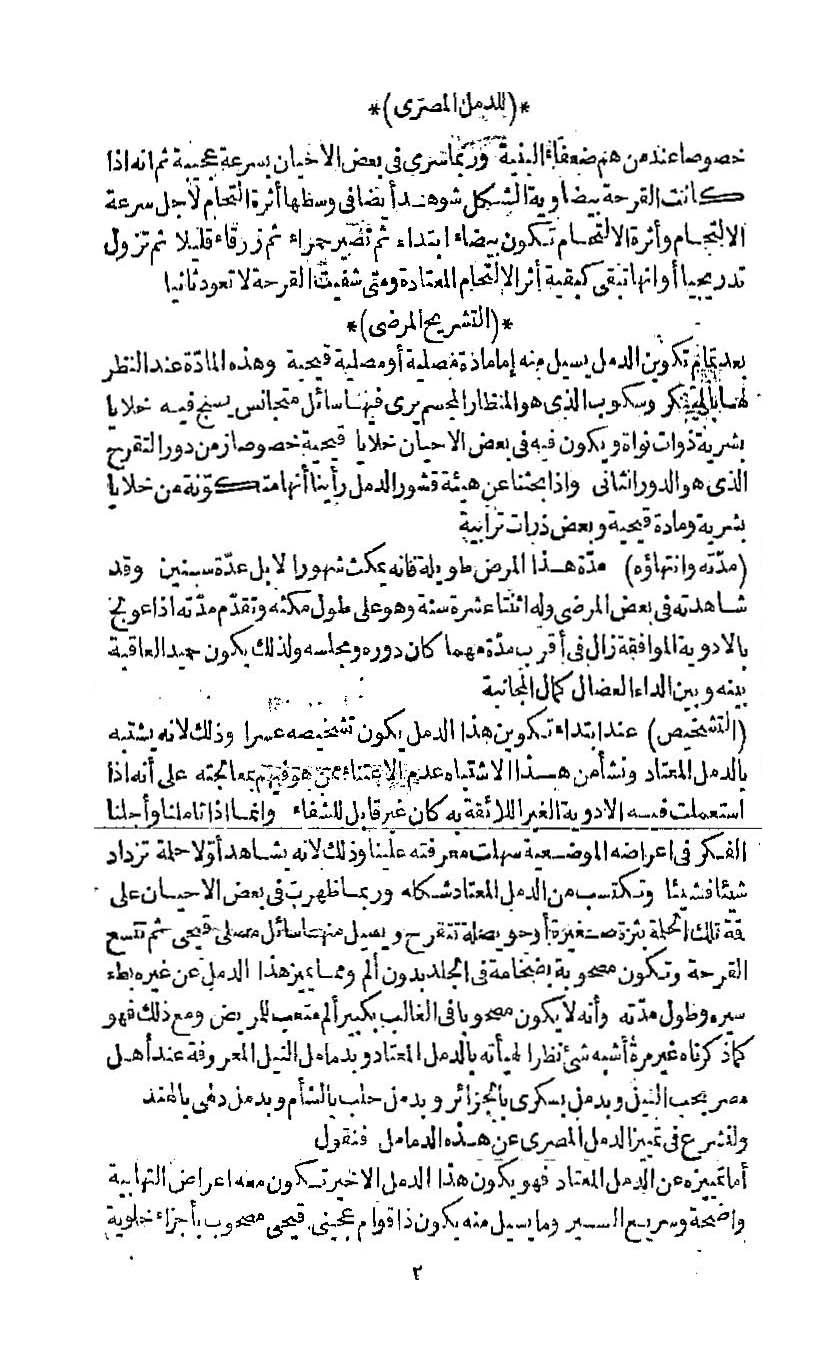 *(للدمل المصرى)*
خصوصا عند من هم ضعفاء البنية وربما سرى فى بعض الاحيان بسرعة عجيبة ثم انه اذا
كانت القرحة بيضاوية الشكل شوهد أيضا فى وسطها أثرة التحام لاجل سرعة
الالتحام وأثرة الالتحام تكون بيضاء ابتداء ثم تصير حمراء ثم زرقاء قليلا ثم تزول
تدريجيا أو انها تبقى كبقية أثر الالتحام المعتادة ومتى شفيت القرحة لا تعود ثانيا
*(التشريح المرضى)*
بعد تمام تكوين الدمل يسيل منه اما مادة مصلية أو مصلية قيحية وهذه المادّة عند النظر
لها بالميكر وسكوب الذى هو المنظار المجسم يرى فيها سائل متجانس يسبح فيه خلايا
بشرية ذوات نواة ويكون فيه فى بعض الاحيان خلايا قيحية خصوصا زمن دور التقرح
الذى هو الدور الثانى واذا بحثنا عن هيئة قشور الدمل رأينا أنها متكوّنة من خلايا
بشرية ومادة قيحية وبعض ذرات ترابية
(مدّته وانتهاؤه) مدّة هذا المرض طويلة فانه يمكث شهورا لا بل عدّة سنين وقد
شاهدته فى بعض المرضى وله اثنتا عشرة سنة وهو على طول مكثه وتقدّم مدّته اذا عولج
بالادوية الموافقة زال فى أقرب مدّة مهما كان دوره ومجلسه ولذلك يكون حميد العاقبة
بينه وبين الداء العضال كمال المجانبة
(التشخيص) عند ابتداء تكوين هذا الدمل يكون تشخيصه عسرا وذلك لانه يشتبه
بالدمل المعتاد ونشأ من هذا الاشتباه عدم الاعتناء ممن هو فيهم بمعالجته على أنه اذا
استعملت فيه الادوية الغير اللائقة به كان غير قابل للشفاء وانما اذا تاملنا وأجلنا
الفكر فى اعراضه الموضعية سهلت معرفته علينا وذلك لانه يشاهد أولا حلمة تزداد
شيئا فشيئا وتكتسب من الدمل المعتاد شكله وربما ظهرت فى بعض الاحيان على
قة تلك الحلمة بثرة صغيرة أو حويصلة تتقرح ويسيل منها سائل مصلى قيحى ثم تتسع
القرحة وتكون مصحوبة بضخامة فى الجلد بدون ألم ومما يميز هذا الدمل عن غيره بطء
سيره وطول مدّته وأنه لا يكون مصحوبا فى الغالب بكبير ألم متعب للمريض ومع ذلك فهو
كما ذكرناه غير مرة أشبه شئ نظرا لهيأته بالدمل المعتاد وبدمامل النيل المعروفة عند أهل
مصر بحب النيل وبدمل بسكرى بالجزائر وبدمل حلب بالشأم وبدمل دهى بالهند
ولنشرع فى تمييز الدمل المصرى عن هذه الدمامل فنقول
أما تمييزه عن الدمل المعتاد فهو يكون هذا الدمل الاخير تكون معه اعراض التهابية
واضحة وسريع السير وما يسيل منه يكون ذا قوام عجينى قيحى مصحوب بأجزاء خلوية
٢